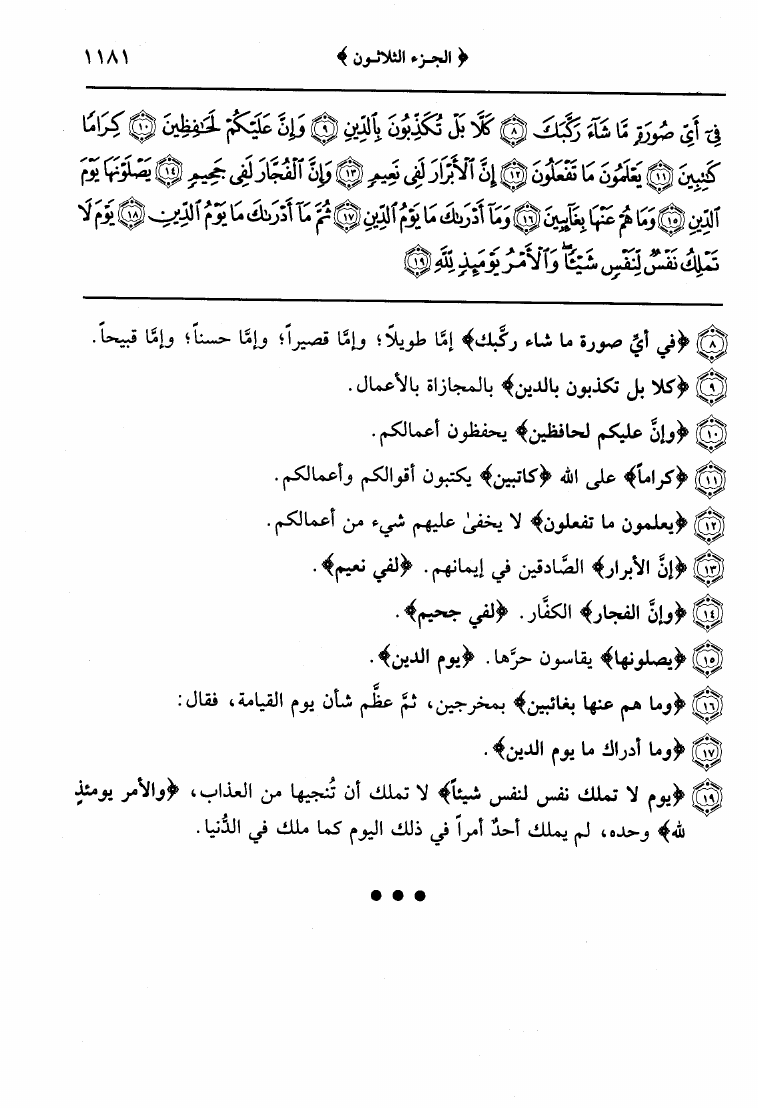 ﴿ الجزء الثلاثون ﴾ ١١٨١
فِىٓ أَىِّ صُورَةٍ مَّا شَآءَ رَكَّبَكَ ٨ كَلَّا بَلْ تُكَذِّبُونَ بِٱلدِّينِ ٩ وَإِنَّ عَلَيْكُمْ لَحَـٰفِظِينَ ١٠ كِرَامًا
كَـٰتِبِينَ ١١ يَعْلَمُونَ مَا تَفْعَلُونَ ١٢ إِنَّ ٱلْأَبْرَارَ لَفِى نَعِيمٍ ١٣ وَإِنَّ ٱلْفُجَّارَ لَفِى جَحِيمٍ ١٤ يَصْلَوْنَهَا يَوْمَ
ٱلدِّينِ ١٥ وَمَا هُمْ عَنْهَا بِغَآئِبِينَ ١٦ وَمَآ أَدْرَىٰكَ مَا يَوْمُ ٱلدِّينِ ١٧ ثُمَّ مَآ أَدْرَىٰكَ مَا يَوْمُ ٱلدِّينِ ١٨ يَوْمَ لَا
تَمْلِكُ نَفْسٌ لِّنَفْسٍ شَيْـًٔا ۖ وَٱلْأَمْرُ يَوْمَئِذٍ لِّلَّهِ ١٩
٨ ﴿في أيِّ صورة ما شاء ركَّبك﴾ إمَّا طويلاً؛ وإمَّا قصيراً؛ وإمَّا حسناً؛ وإمَّا قبيحاً.
٩ ﴿كلا بل تكذبون بالدين﴾ بالمجازاة بالأعمال.
١٠ ﴿وإنَّ عليكم لحافظين﴾ يحفظون أعمالكم.
١١ ﴿كراماً﴾ على الله ﴿كاتبين﴾ يكتبون أقوالكم وأعمالكم.
١٢ ﴿يعلمون ما تفعلون﴾ لا يخفىٰ عليهم شيء من أعمالكم.
١٣ ﴿إنَّ الأبرار﴾ الصَّادقين في إيمانهم. ﴿لفي نعيم﴾.
١٤ ﴿وإنَّ الفجار﴾ الكفَّار. ﴿لفي جحيم﴾.
١٥ ﴿يصلونها﴾ يقاسون حرَّها. ﴿يوم الدين﴾.
١٦ ﴿وما هم عنها بغائبين﴾ بمخرجين، ثمَّ عظَّم شأن يوم القيامة، فقال:
١٧ ﴿وما أدراك ما يوم الدين﴾.
١٩ ﴿يوم لا تملك نفس لنفس شيئاً﴾ لا تملك أن تُنجيها من العذاب، ﴿والأمر يومئذٍ
لله﴾ وحده، لم يملك أحدٌ أمراً في ذلك اليوم كما ملك في الدُّنيا.